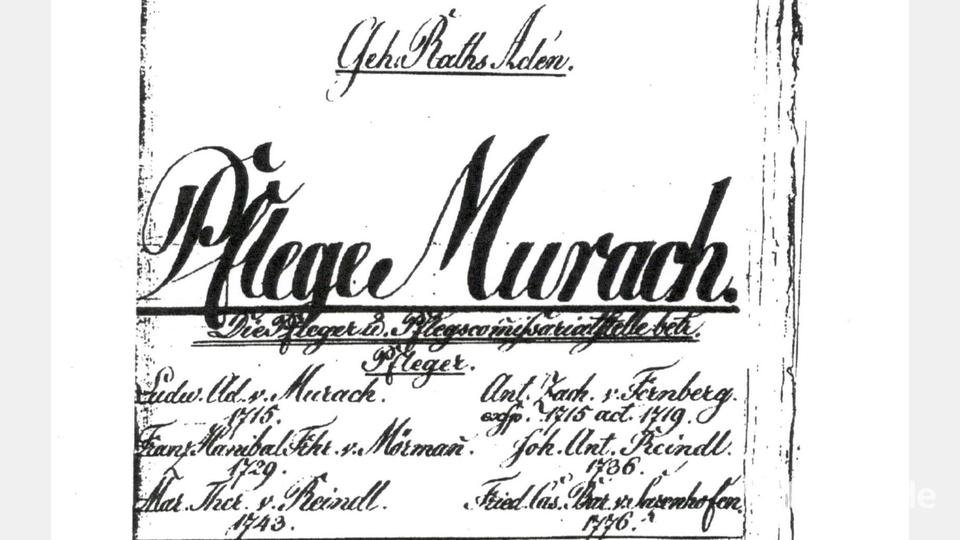 Geh. Raths Adén.
Pflege Murach.
Die Pfleger u. Pflegscom̃issariatsstelle betr.
Pfleger.
Ludw. Ad. v. Murach.
1715.
Ant. Zach. v. Fernberg.
exsp. 1715 act. 1719.
Franz Hanibal Frhr. v. Mörmañ.
1729.
Joh. Ant. Reindl.
1736.
Mar. Ther. v. Reindl.
1743.
Fried. Cas. Bar. v.
1776.